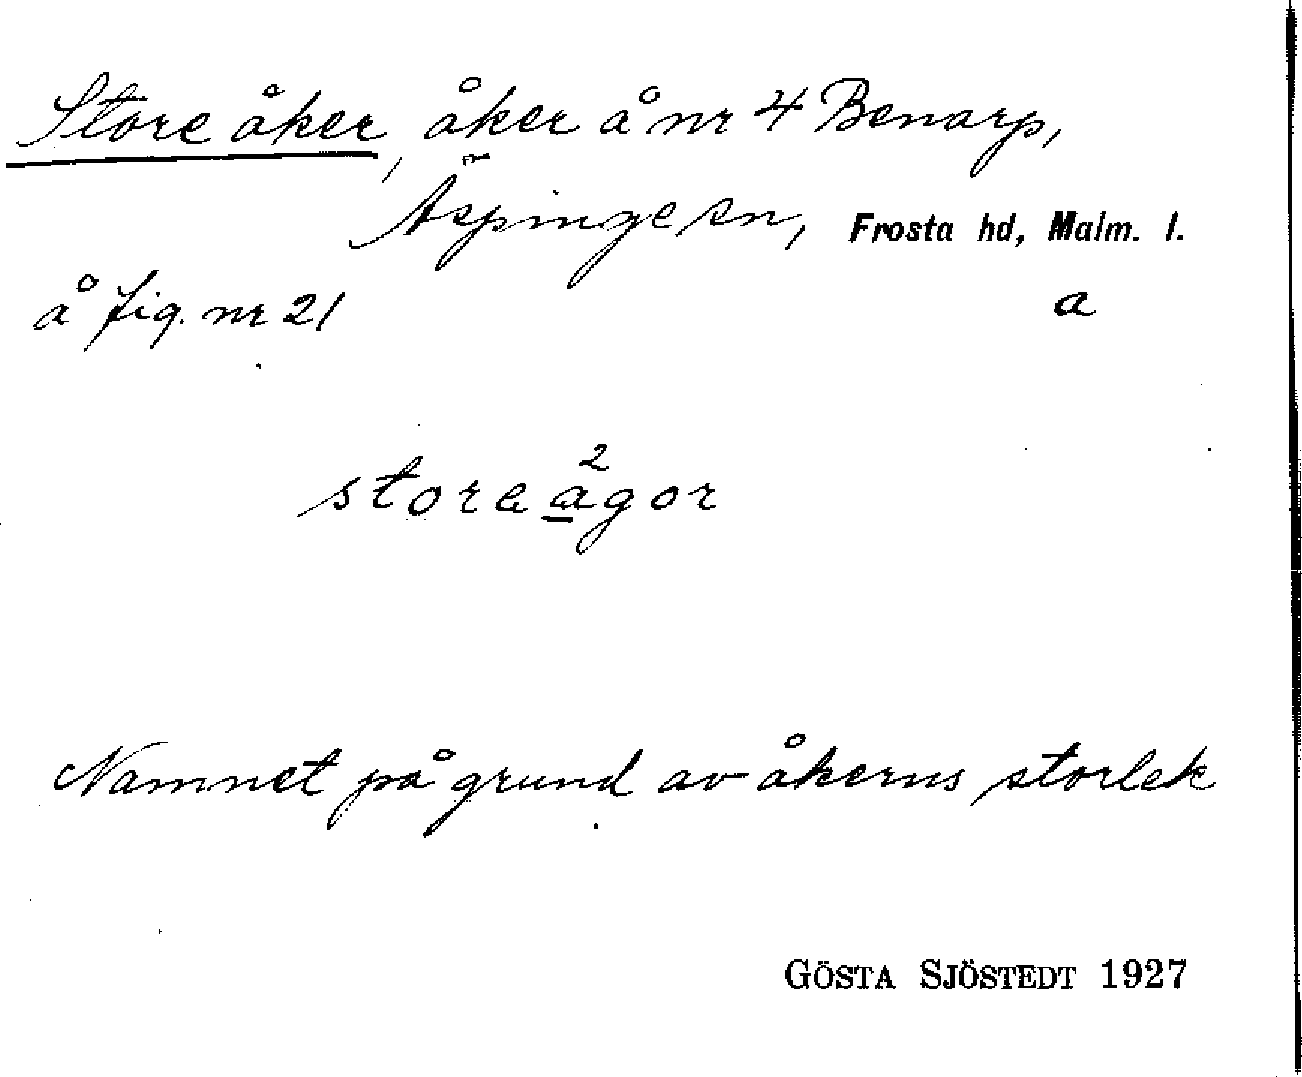 Store åker, åker å nr 4 Benarp,
Äspinge sn, Frosta hd, Malm. l.
å fig. nr 21 a
2
store agor
Namnet på grund av åkerns storlek
GÖSTA SJÖSTEDT 1927